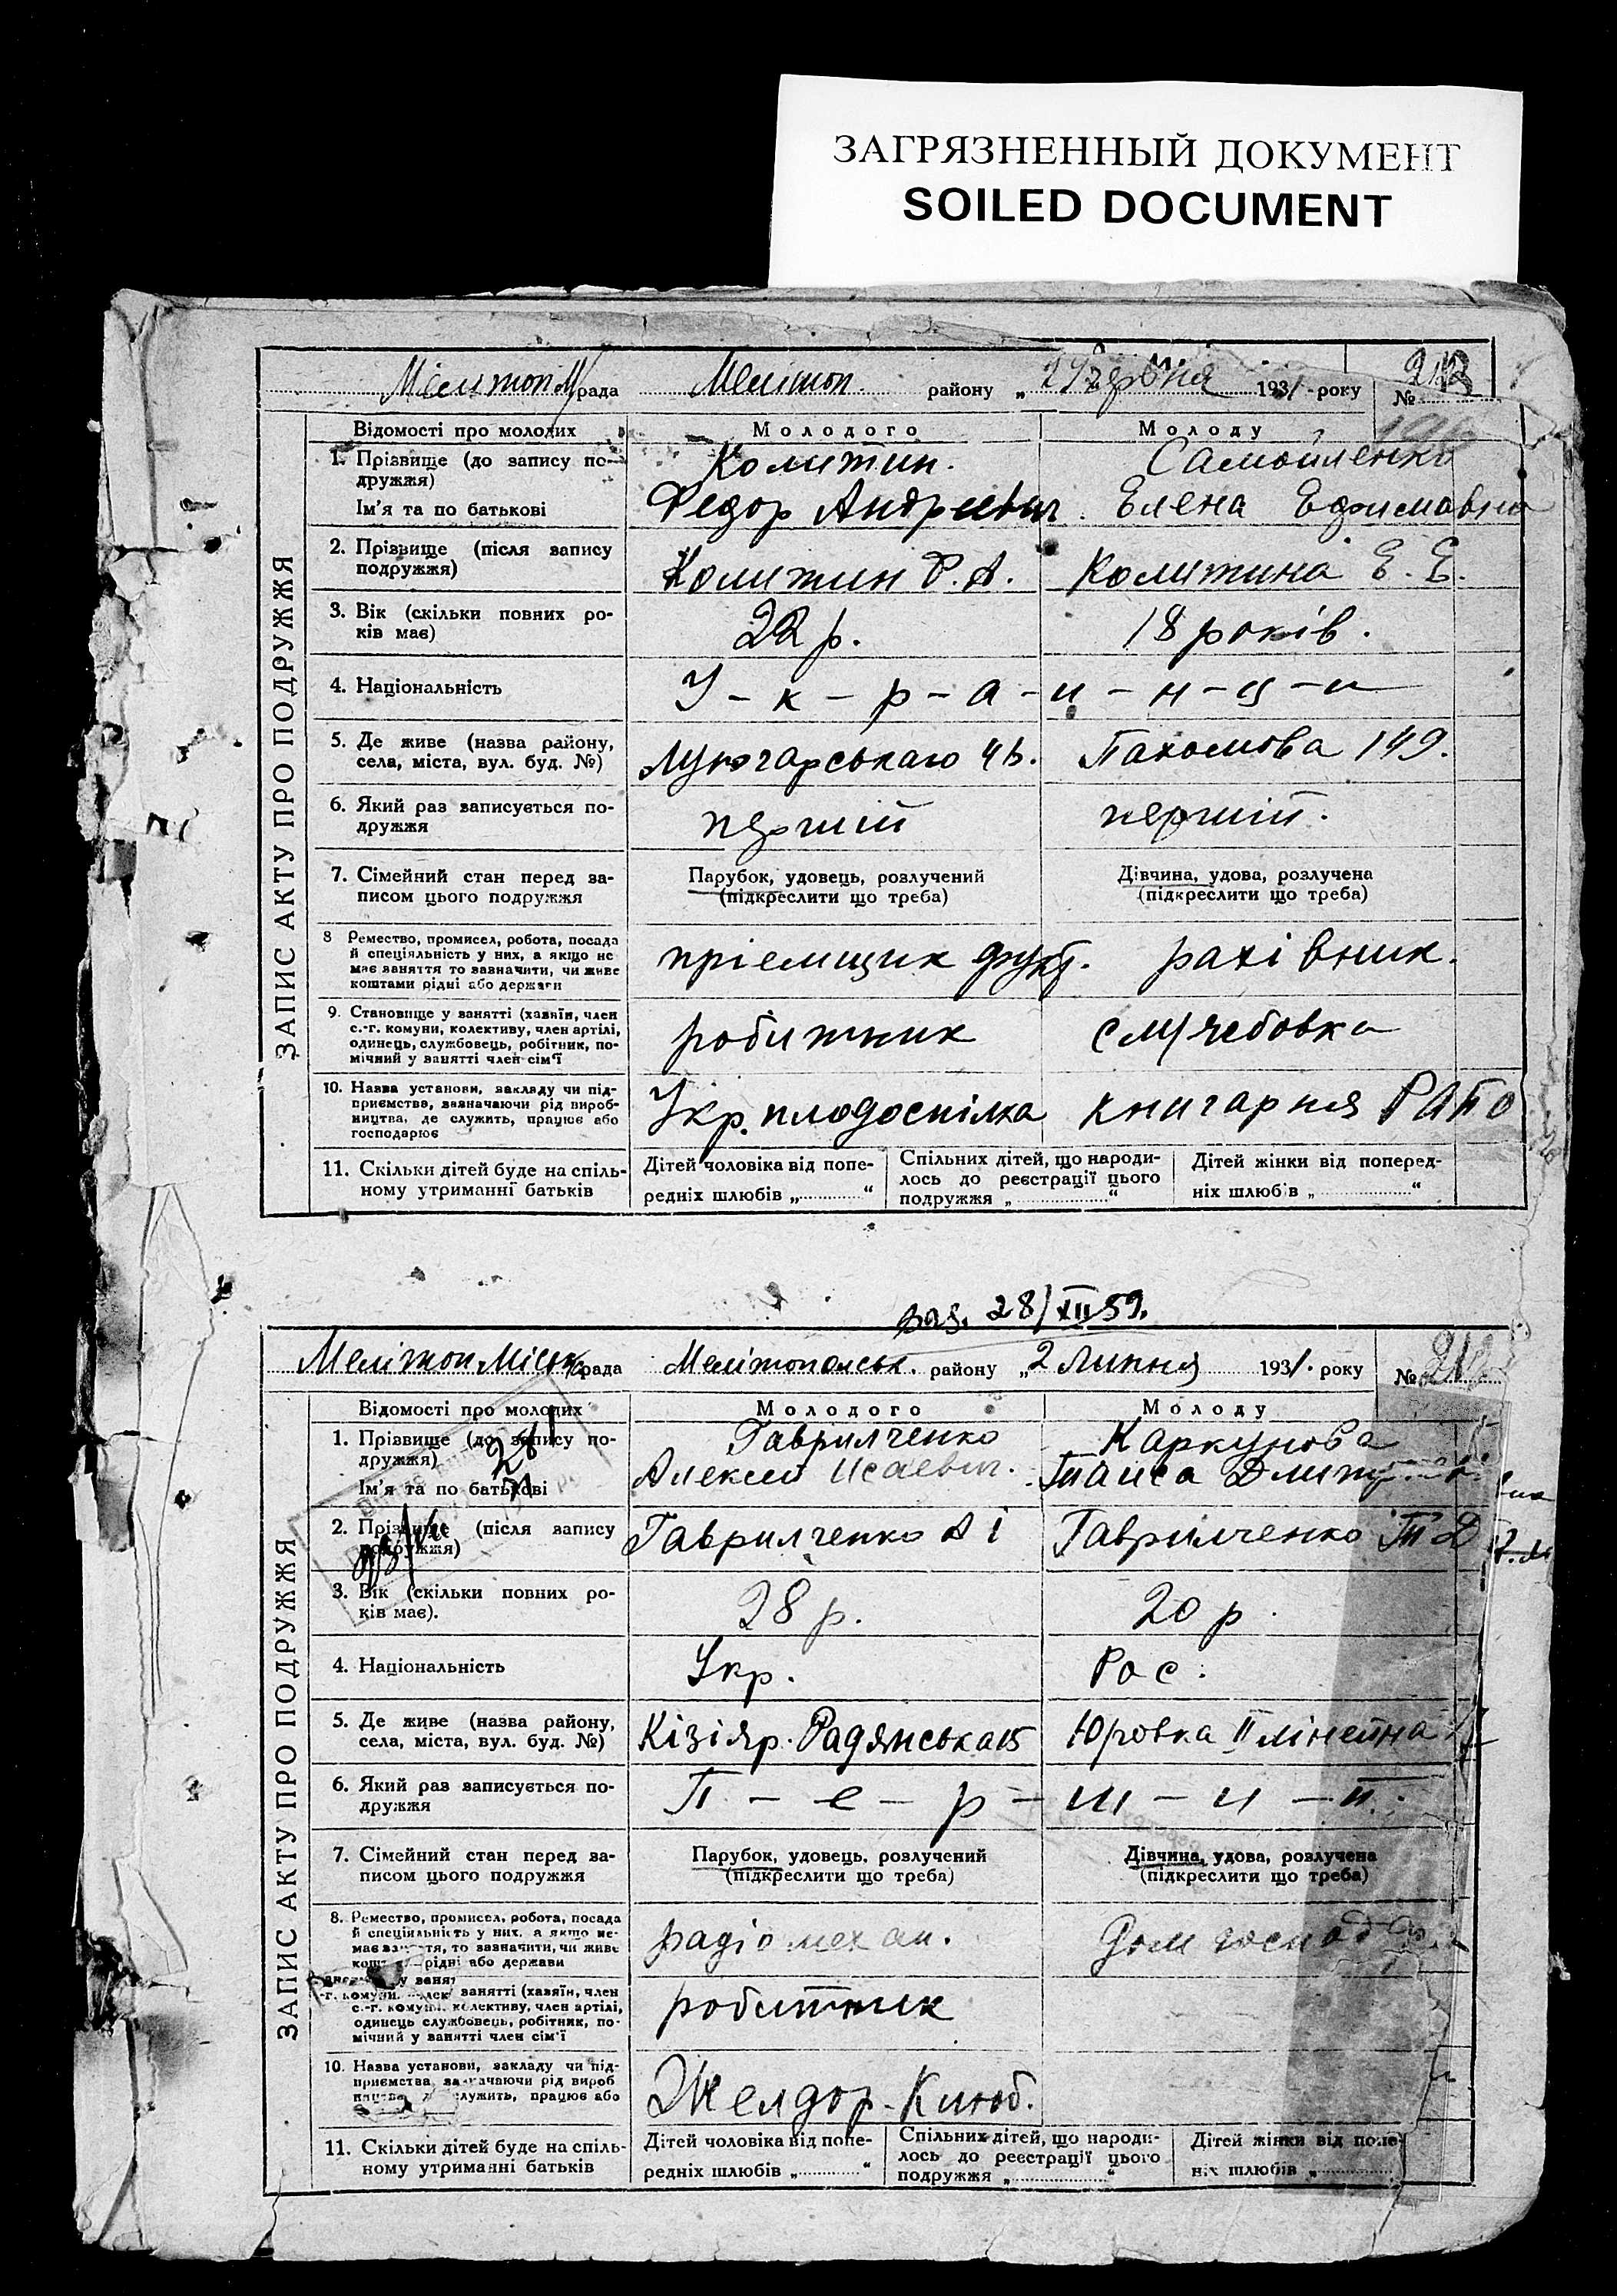 ЗАГРЯЗНЕННЫЙ ДОКУМЕНТ
SOILED DOCUMENT
Мелитоп М/рада Мелитоп. району „ червня 1931 року №
ЗАПИС АКТУ ПРО ПОДРУЖЖЯ
Відомості про молодих Молодого Молоду
1. Прізвище (до запису по-
дружжя)
Колитин. Самойленко
Ім'я та по батькові Федор Андреевич. Елена Ефимовна
2. Прізвище (після запису
подружжя)
Колитин Ф. А. Колитина Е. Е.
3. Вік (скільки повних ро-
ків має)
22 р. 18 років.
4. Національність У-к-р-а-и-н-ц-и
5. Де живе (назва району,
села, міста, вул. буд. №)
Пахомова 149.
6. Який раз записується по-
дружжя
перший перший.
7. Сімейний стан перед за-
писом цього подружжя
Парубок, удовець, розлучений
(підкреслити що треба)
Дівчина, удова, розлучена
(підкреслити що треба)
8 Ремество, промисел, робота, посада
й спеціяльність у них, а якщо не
має заняття то зазначити, чи живе
коштами рідні або держави
пріемщик фрукт. рахівник.
9. Становище у занятті (хазяїн, член
с.-г. комуни, колективу, член артілі,
одинець, службовець, робітник, по-
мічний у занятті член сім'ї
робитник служебовка
10. Назва установи, закладу чи під-
приємства, зазначаючи рід вироб-
ництва, де служить, працює або
господарює
Укр. плодоспілка книгарня
11. Скільки дітей буде на спіль-
ному утриманні батьків
Дітей чоловіка від попе-
редніх шлюбів „ “
Спільних дітей, що народи-
лось до реєстрації цього
подружжя „ “
Дітей жінки від поперед-
ніх шлюбів „ “
28/XII 59.
Мелітоп Міськ/рада Мелітопольськ. району „2 липня 1931. року №
ЗАПИС АКТУ ПРО ПОДРУЖЖЯ
Відомості про молодих Молодого Молоду
1. Прізвище (до запису по-
дружжя)
Гаврилченко Каркунова
Ім'я та по батькові Алексей Исаевич. Таиса
2. Прізвище (після запису
подружжя)
Гаврилченко А І Гаврилченко Т Д
3. Вік (скільки повних ро-
ків має).
28 р. 20 р.
4. Національність Укр. Рос.
5. Де живе (назва району,
села, міста, вул. буд. №)
Кізіяр. Радянська 15 Юровка II лінейна
6. Який раз записується по-
дружжя
П-е-р-ш-и-й.
7. Сімейний стан перед за-
писом цього подружжя
Парубок, удовець, розлучений
(підкреслити що треба)
Дівчина, удова, розлучена
(підкреслити що треба)
8. Ремество, промисел, робота, посада
й спеціяльність у них, а якщо не-
має заняття, то зазначити, чи живе
рідні або держави
радіомехан. Дом господ
занятті (хазяїн, член
с.-г. комуни, колективу, член артілі,
одинець службовець, робітник, по-
мічний у занятті член сім'ї
робитник
10. Назва установи, закладу чи під-
приємства зазначаючи рід вироб
служить, працює або
Желдор. Клюб.
11. Скільки дітей буде на спіль-
ному утриманні батьків
Дітей чоловіка від попе-
редніх шлюбів „ “
Спільних дітей, що народи-
лось до реєстрації цього
подружжя „ “
Дітей жінки від попе-
ніх шлюбів „